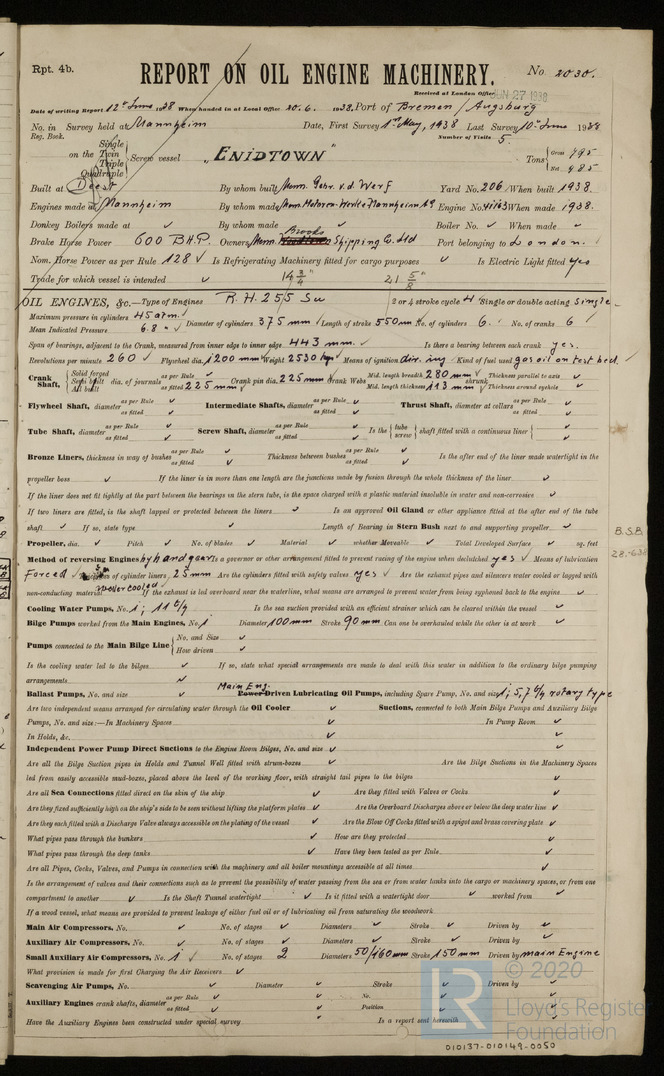 Rpt. 4b.
REPORT ON OIL ENGINE MACHINERY.
No. 2030.
Received at London Office JUN 27 1938
Date of writing Report 12th June 1938 When handed in at Local Office 20.6. 1938. Port of Bremen / Augsburg
No. in Survey held at Mannheim Date, First Survey 1st May, 1938 Last Survey 10th June 1938
Reg. Book. Number of Visits 5.
on the Single Twin Triple Quadruple Screw vessel "ENIDTOWN" Tons Gross 795 Net 485
Built at Deest By whom built Messrs. Gebr. v.d. Werf Yard No. 206 When built 1938.
Engines made at Mannheim By whom made Motoren-Werke Mannheim AG Engine No. When made 1938.
Donkey Boilers made at ✓ By whom made ✓ Boiler No. ✓ When made ✓
Brake Horse Power 600 B.H.P. Owners Messrs. Brooks Shipping Co. Ltd Port belonging to London.
Nom. Horse Power as per Rule 128 ✓ Is Refrigerating Machinery fitted for cargo purposes ✓ Is Electric Light fitted yes
Trade for which vessel is intended ✓ 14 3/4" 21 5/8"
OIL ENGINES, &c.—Type of Engines R.H. 255 Su 2 or 4 stroke cycle 4 Single or double acting Single
Maximum pressure in cylinders 45 atm.
Mean Indicated Pressure 6.8 " ✓ Diameter of cylinders 375 mm Length of stroke 550 mm No. of cylinders 6. No. of cranks 6
Span of bearings, adjacent to the Crank, measured from inner edge to inner edge 443 mm. Is there a bearing between each crank yes.
Revolutions per minute 260 ✓ Flywheel dia. 1200 mm Weight 2530 kgs ✓ Means of ignition dir. inj Kind of fuel used gas oil on test bed.
Crank Shaft, Solid forged Semi built All built dia. of journals as per Rule ✓ as fitted 225 mm Crank pin dia. 225 mm Crank Webs Mid. length breadth 280 mm Mid. length thickness 113 mm shrunk Thickness parallel to axis ✓ Thickness around eyehole ✓
Flywheel Shaft, diameter as per Rule as fitted ✓ Intermediate Shafts, diameter as per Rule as fitted ✓ Thrust Shaft, diameter at collars as per Rule as fitted ✓
Tube Shaft, diameter as per Rule as fitted ✓ Screw Shaft, diameter as per Rule as fitted ✓ Is the tube screw shaft fitted with a continuous liner ✓
Bronze Liners, thickness in way of bushes as per Rule as fitted ✓ Thickness between bushes as per Rule as fitted ✓ Is the after end of the liner made watertight in the
propeller boss ✓ If the liner is in more than one length are the junctions made by fusion through the whole thickness of the liner ✓
If the liner does not fit tightly at the part between the bearings in the stern tube, is the space charged with a plastic material insoluble in water and non-corrosive ✓
If two liners are fitted, is the shaft lapped or protected between the liners ✓ Is an approved Oil Gland or other appliance fitted at the after end of the tube
shaft ✓ If so, state type ✓ Length of Bearing in Stern Bush next to and supporting propeller ✓
Propeller, dia. ✓ Pitch ✓ No. of blades ✓ Material ✓ whether Moveable ✓ Total Developed Surface ✓ sq. feet
Method of reversing Engines by hand gear Is a governor or other arrangement fitted to prevent racing of the engine when declutched yes ✓ Means of lubrication
Forced ✓ Thickness of cylinder liners 25 mm Are the cylinders fitted with safety valves yes ✓ Are the exhaust pipes and silencers water cooled or lagged with
non-conducting material water cooled If the exhaust is led overboard near the waterline, what means are arranged to prevent water from being syphoned back to the engine ✓
Cooling Water Pumps, No. 1; Is the sea suction provided with an efficient strainer which can be cleared within the vessel ✓
Bilge Pumps worked from the Main Engines, No. 1 Diameter 100 mm Stroke 90 mm Can one be overhauled while the other is at work ✓
Pumps connected to the Main Bilge Line No. and Size ✓ How driven ✓
Is the cooling water led to the bilges ✓ If so, state what special arrangements are made to deal with this water in addition to the ordinary bilge pumping
arrangements ✓
Ballast Pumps, No. and size ✓ Main Eng. Power Driven Lubricating Oil Pumps, including Spare Pump, No. and size 1; rotary type
Are two independent means arranged for circulating water through the Oil Cooler ✓ Suctions, connected to both Main Bilge Pumps and Auxiliary Bilge
Pumps, No. and size:—In Machinery Spaces ✓ In Pump Room ✓
In Holds, &c. ✓
Independent Power Pump Direct Suctions to the Engine Room Bilges, No. and size ✓
Are all the Bilge Suction pipes in Holds and Tunnel Well fitted with strum-boxes ✓ Are the Bilge Suctions in the Machinery Spaces
led from easily accessible mud-boxes, placed above the level of the working floor, with straight tail pipes to the bilges ✓
Are all Sea Connections fitted direct on the skin of the ship ✓ Are they fitted with Valves or Cocks ✓
Are they fixed sufficiently high on the ship's side to be seen without lifting the platform plates ✓ Are the Overboard Discharges above or below the deep water line ✓
Are they each fitted with a Discharge Valve always accessible on the plating of the vessel ✓ Are the Blow Off Cocks fitted with a spigot and brass covering plate ✓
What pipes pass through the bunkers ✓ How are they protected ✓
What pipes pass through the deep tanks ✓ Have they been tested as per Rule ✓
Are all Pipes, Cocks, Valves, and Pumps in connection with the machinery and all boiler mountings accessible at all times ✓
Is the arrangement of valves and their connections such as to prevent the possibility of water passing from the sea or from water tanks into the cargo or machinery spaces, or from one
compartment to another ✓ Is the Shaft Tunnel watertight ✓ Is it fitted with a watertight door ✓ worked from ✓
If a wood vessel, what means are provided to prevent leakage of either fuel oil or of lubricating oil from saturating the woodwork
Main Air Compressors, No. ✓ No. of stages ✓ Diameters ✓ Stroke ✓ Driven by ✓
Auxiliary Air Compressors, No. ✓ No. of stages ✓ Diameters ✓ Stroke ✓ Driven by ✓
Small Auxiliary Air Compressors, No. 1 ✓ No. of stages 2 Diameters 50/160 mm Stroke 150 mm Driven by main Engine
What provision is made for first Charging the Air Receivers ✓
Scavenging Air Pumps, No. ✓ Diameter ✓ Stroke ✓ Driven by ✓
Auxiliary Engines crank shafts, diameter as per Rule as fitted ✓ No. Position ✓
Have the Auxiliary Engines been constructed under special survey ✓ Is a report sent herewith ✓
B.S.B.
© 2020
Lloyd's Register
Foundation
LR
010137-010149-0050